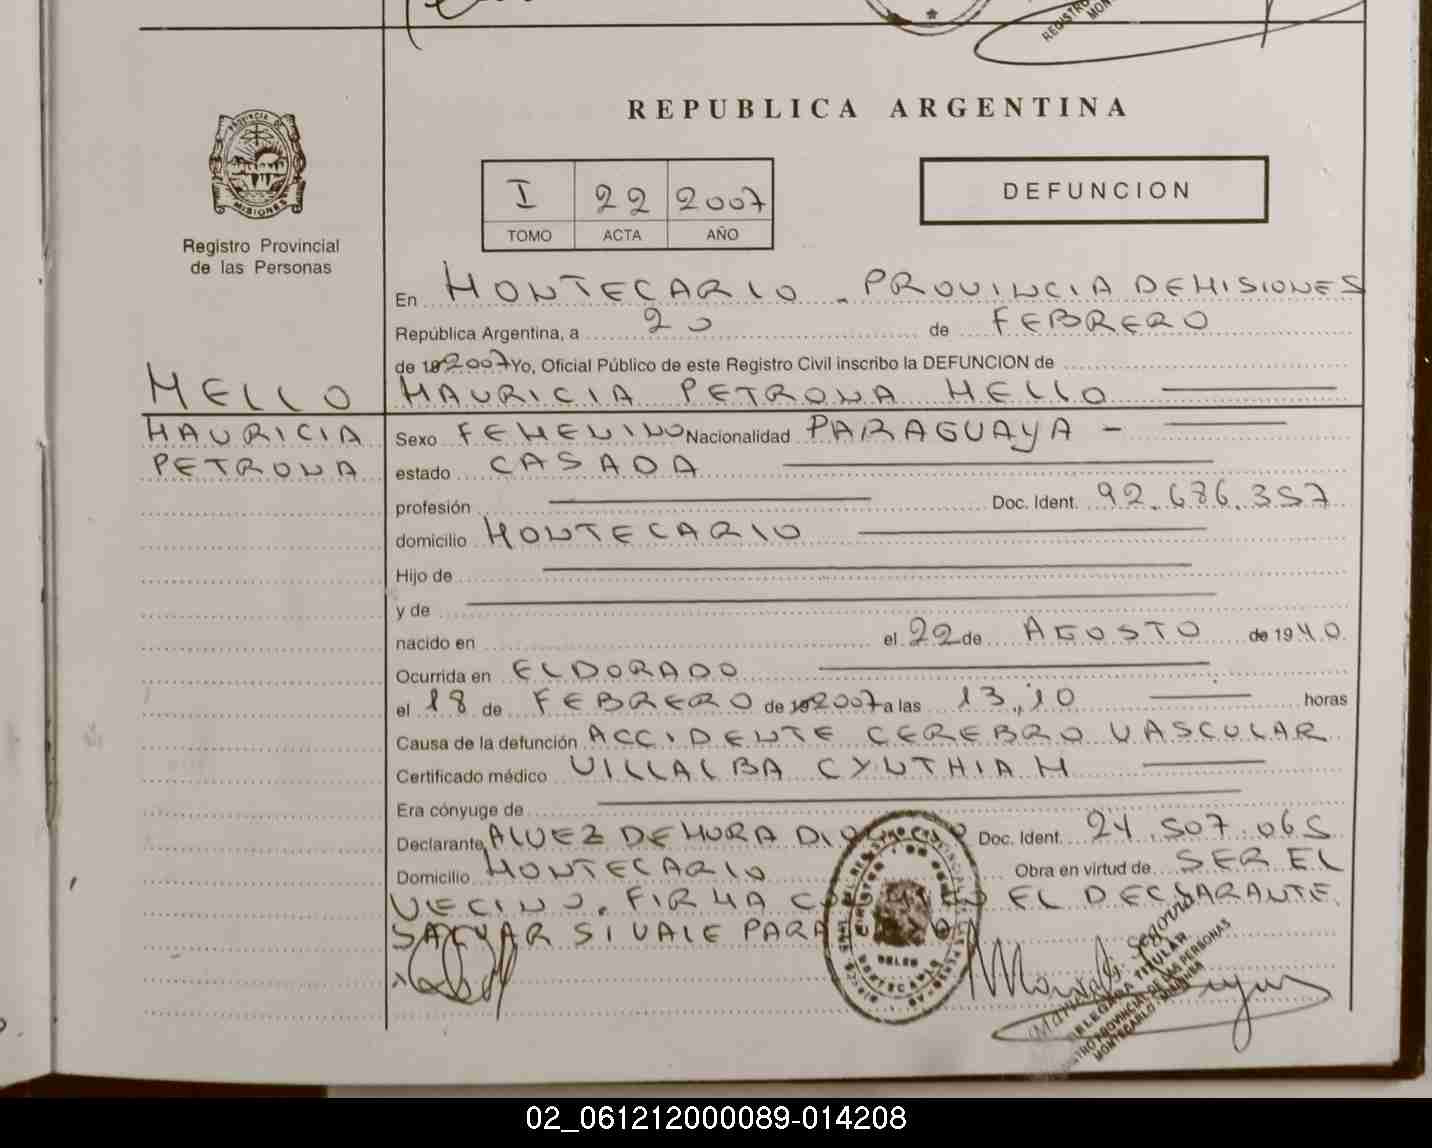 REPUBLICA ARGENTINA
PROVINCIA DE
MISIONES
Registro Provincial
de las Personas
I 22 2007
TOMO ACTA AÑO
DEFUNCION
En MONTECARLO - PROVINCIA DE MISIONES
República Argentina, a 20 de FEBRERO
de 2007 Yo, Oficial Público de este Registro Civil inscribo la DEFUNCION de
MELLO
MAURICIA PETRONA MELLO
MAURICIA
PETRONA
Sexo FEMENINO Nacionalidad PARAGUAYA -
estado CASADA
profesión Doc. Ident. 92.686.357
domicilio MONTECARLO
Hijo de
y de
nacido en el 22 de AGOSTO de 1940
Ocurrida en ELDORADO
el 18 de FEBRERO de 2007 a las 13,10 horas
Causa de la defunción ACCIDENTE CEREBRO VASCULAR
Certificado médico VILLALBA CYNTHIA M
Era cónyuge de
Declarante ALVEZ DE MORA Doc. Ident. 24.507.065
Domicilio MONTECARLO Obra en virtud de SER EL
VECINO. FIRMA EL DECLARANTE
SI VALE PARA
Segovia
DELEGADA TITULAR
REGISTRO PROVINCIAL DE LAS PERSONAS
MONTECARLO - MISIONES
02_061212000089-014208